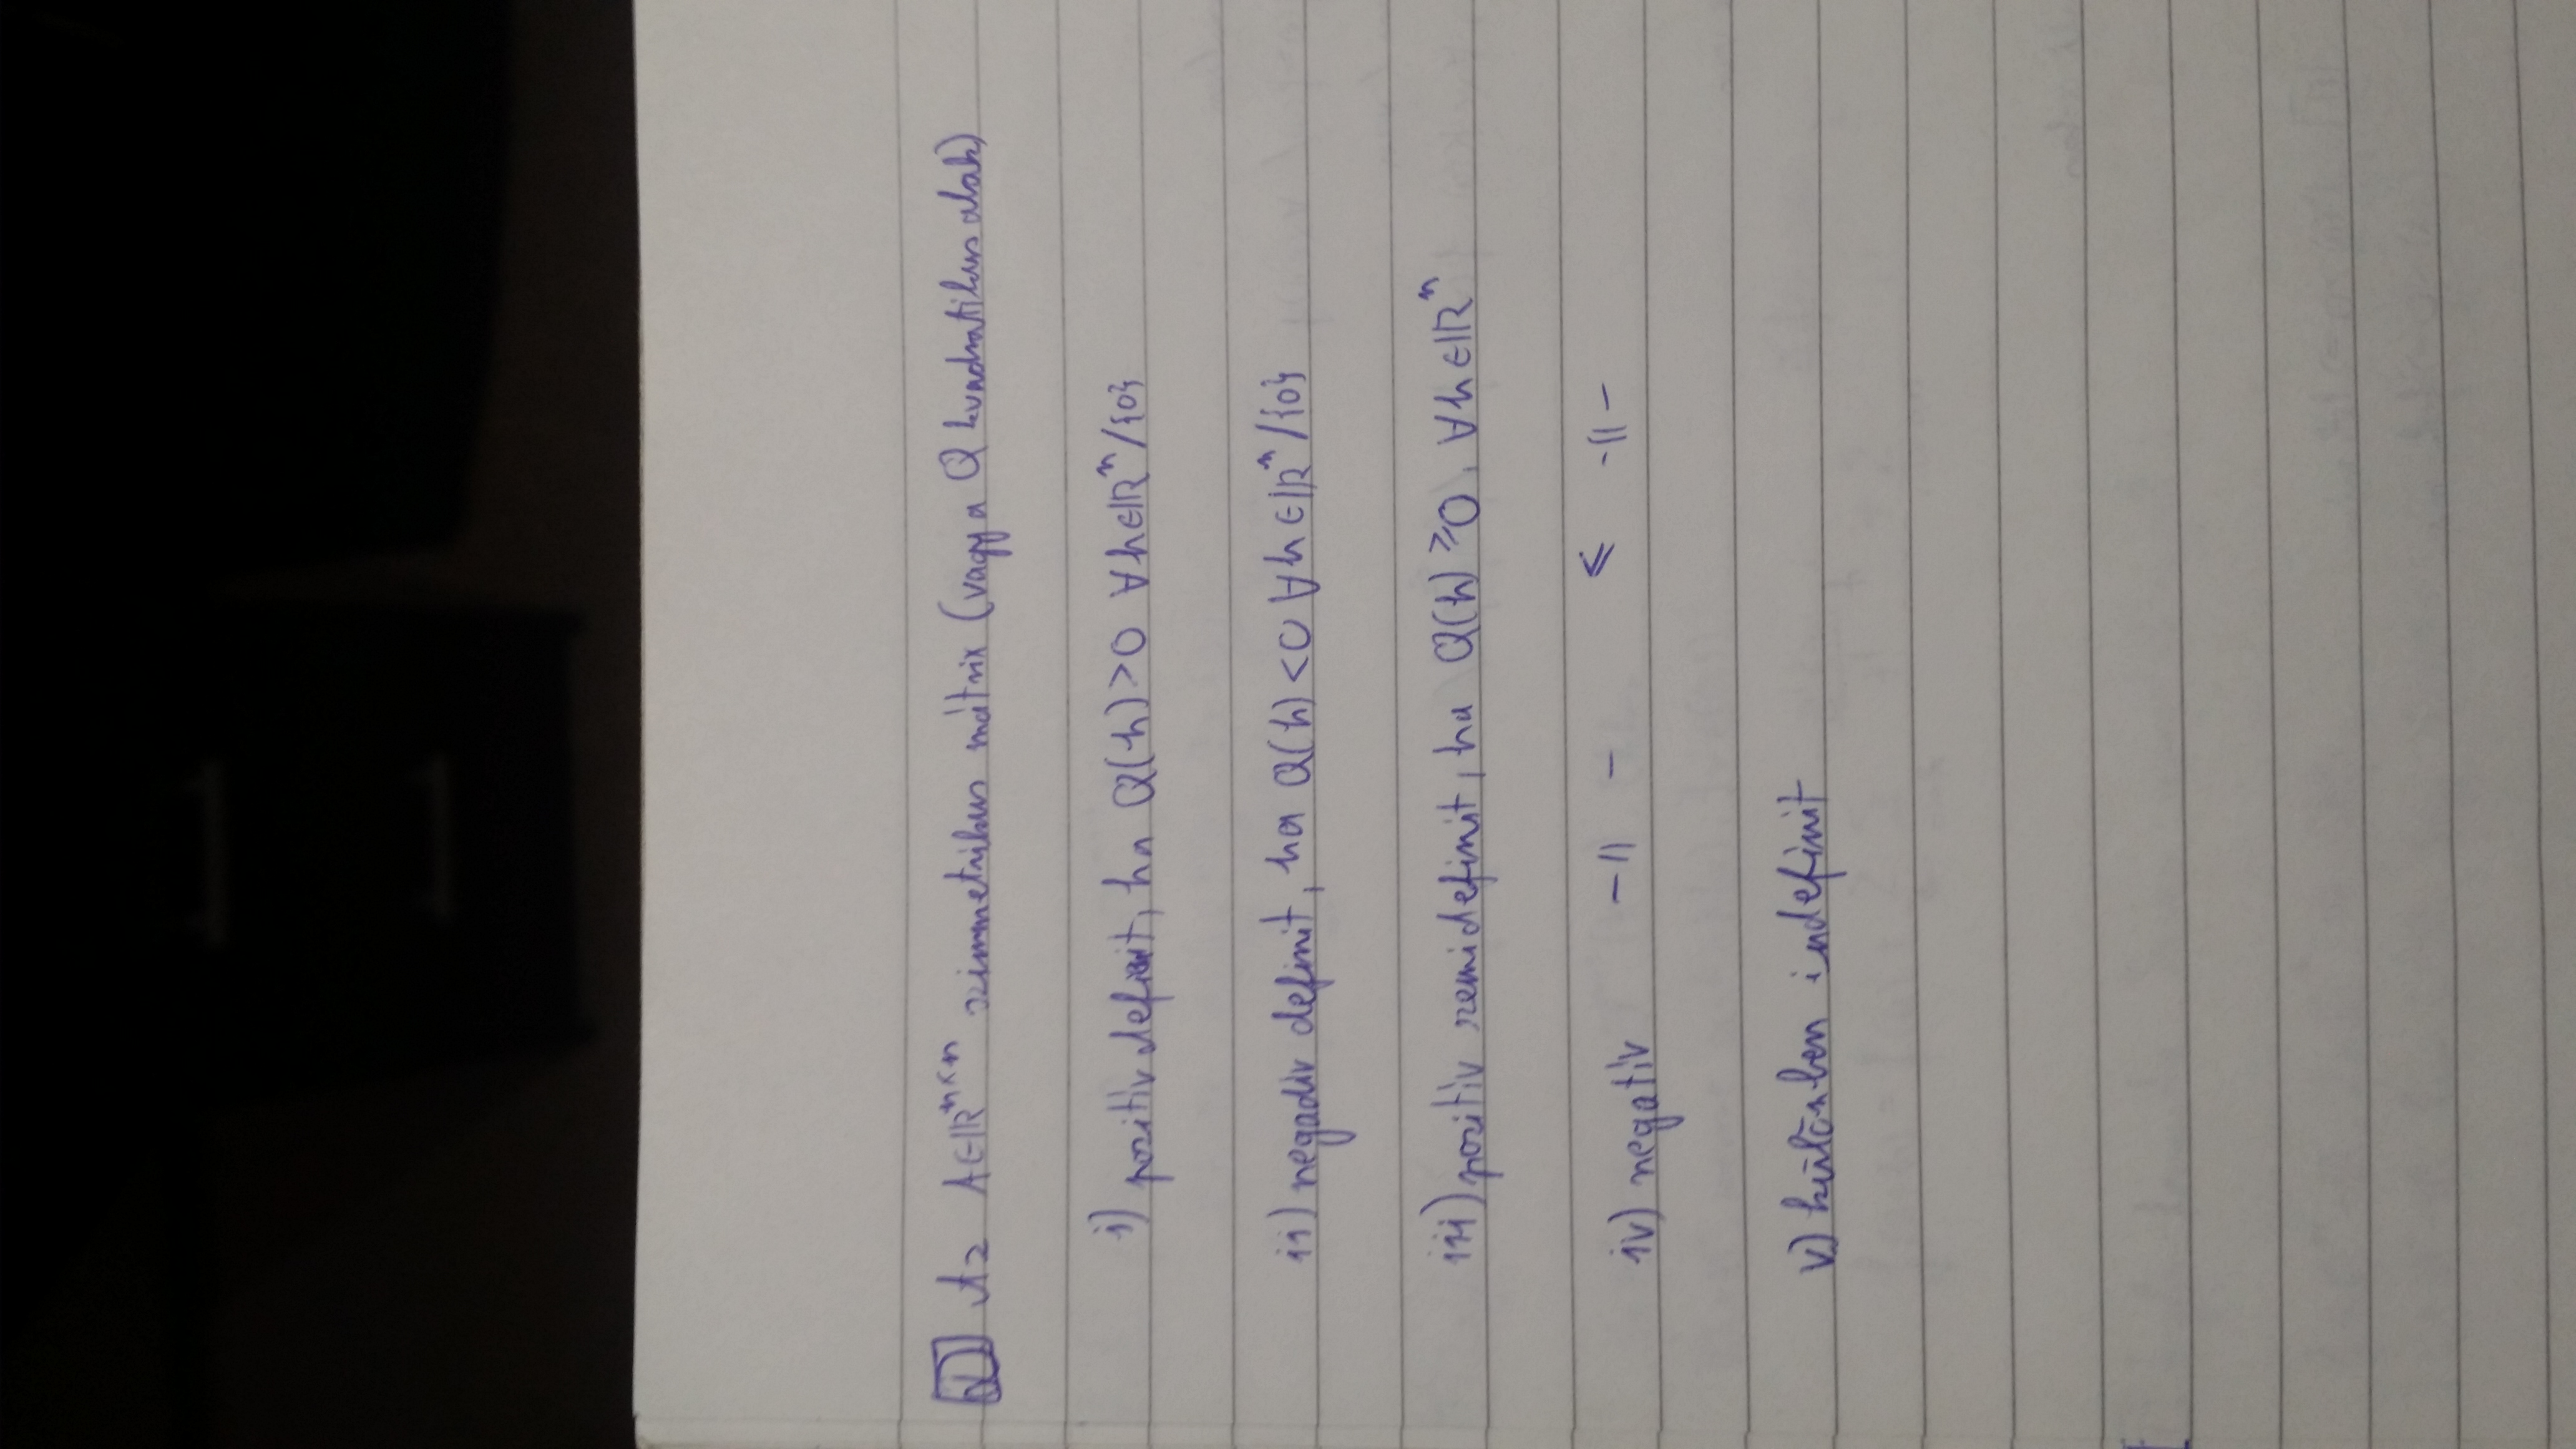 D Az A∈ℝⁿˣⁿ szimmetrikus mátrix (vagy a Q kvadratikus alak)
i) pozitiv definit, ha Q(h)>0 ∀h∈ℝⁿ/{0}
ii) negadiv definit, ha Q(h)<0 ∀h∈ℝⁿ/{0}
iii) pozitiv szemidefinit, ha Q(h)≥0, ∀h∈ℝⁿ
iv) negativ -||- ≤ -||-
v) különben indefinit